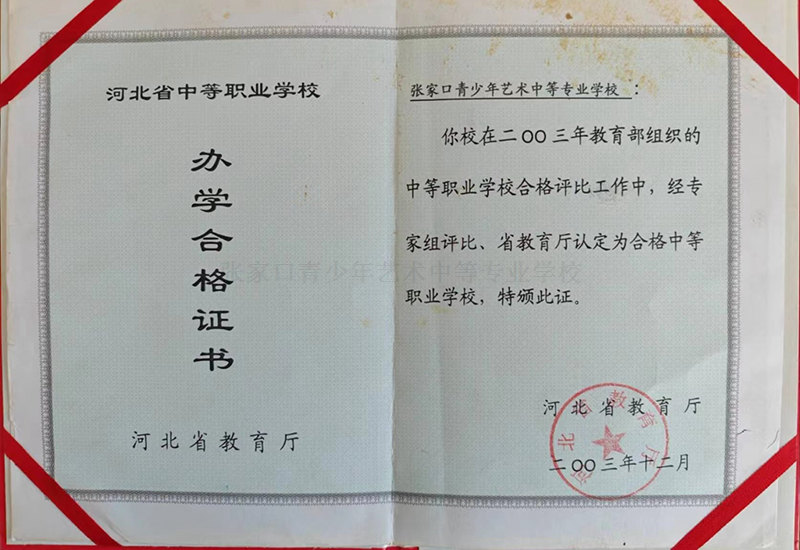 河北省中等职业学校
办学合格证书
河北省教育厅
张家口青少年艺术中等专业学校：
你校在二OO三年教育部组织的
中等职业学校合格评比工作中，经专
家组评比、省教育厅认定为合格中等
职业学校，特颁此证。
河北省教育厅
二OO三年十二月
河北省教育厅
张家口青少年艺术中等专业学校